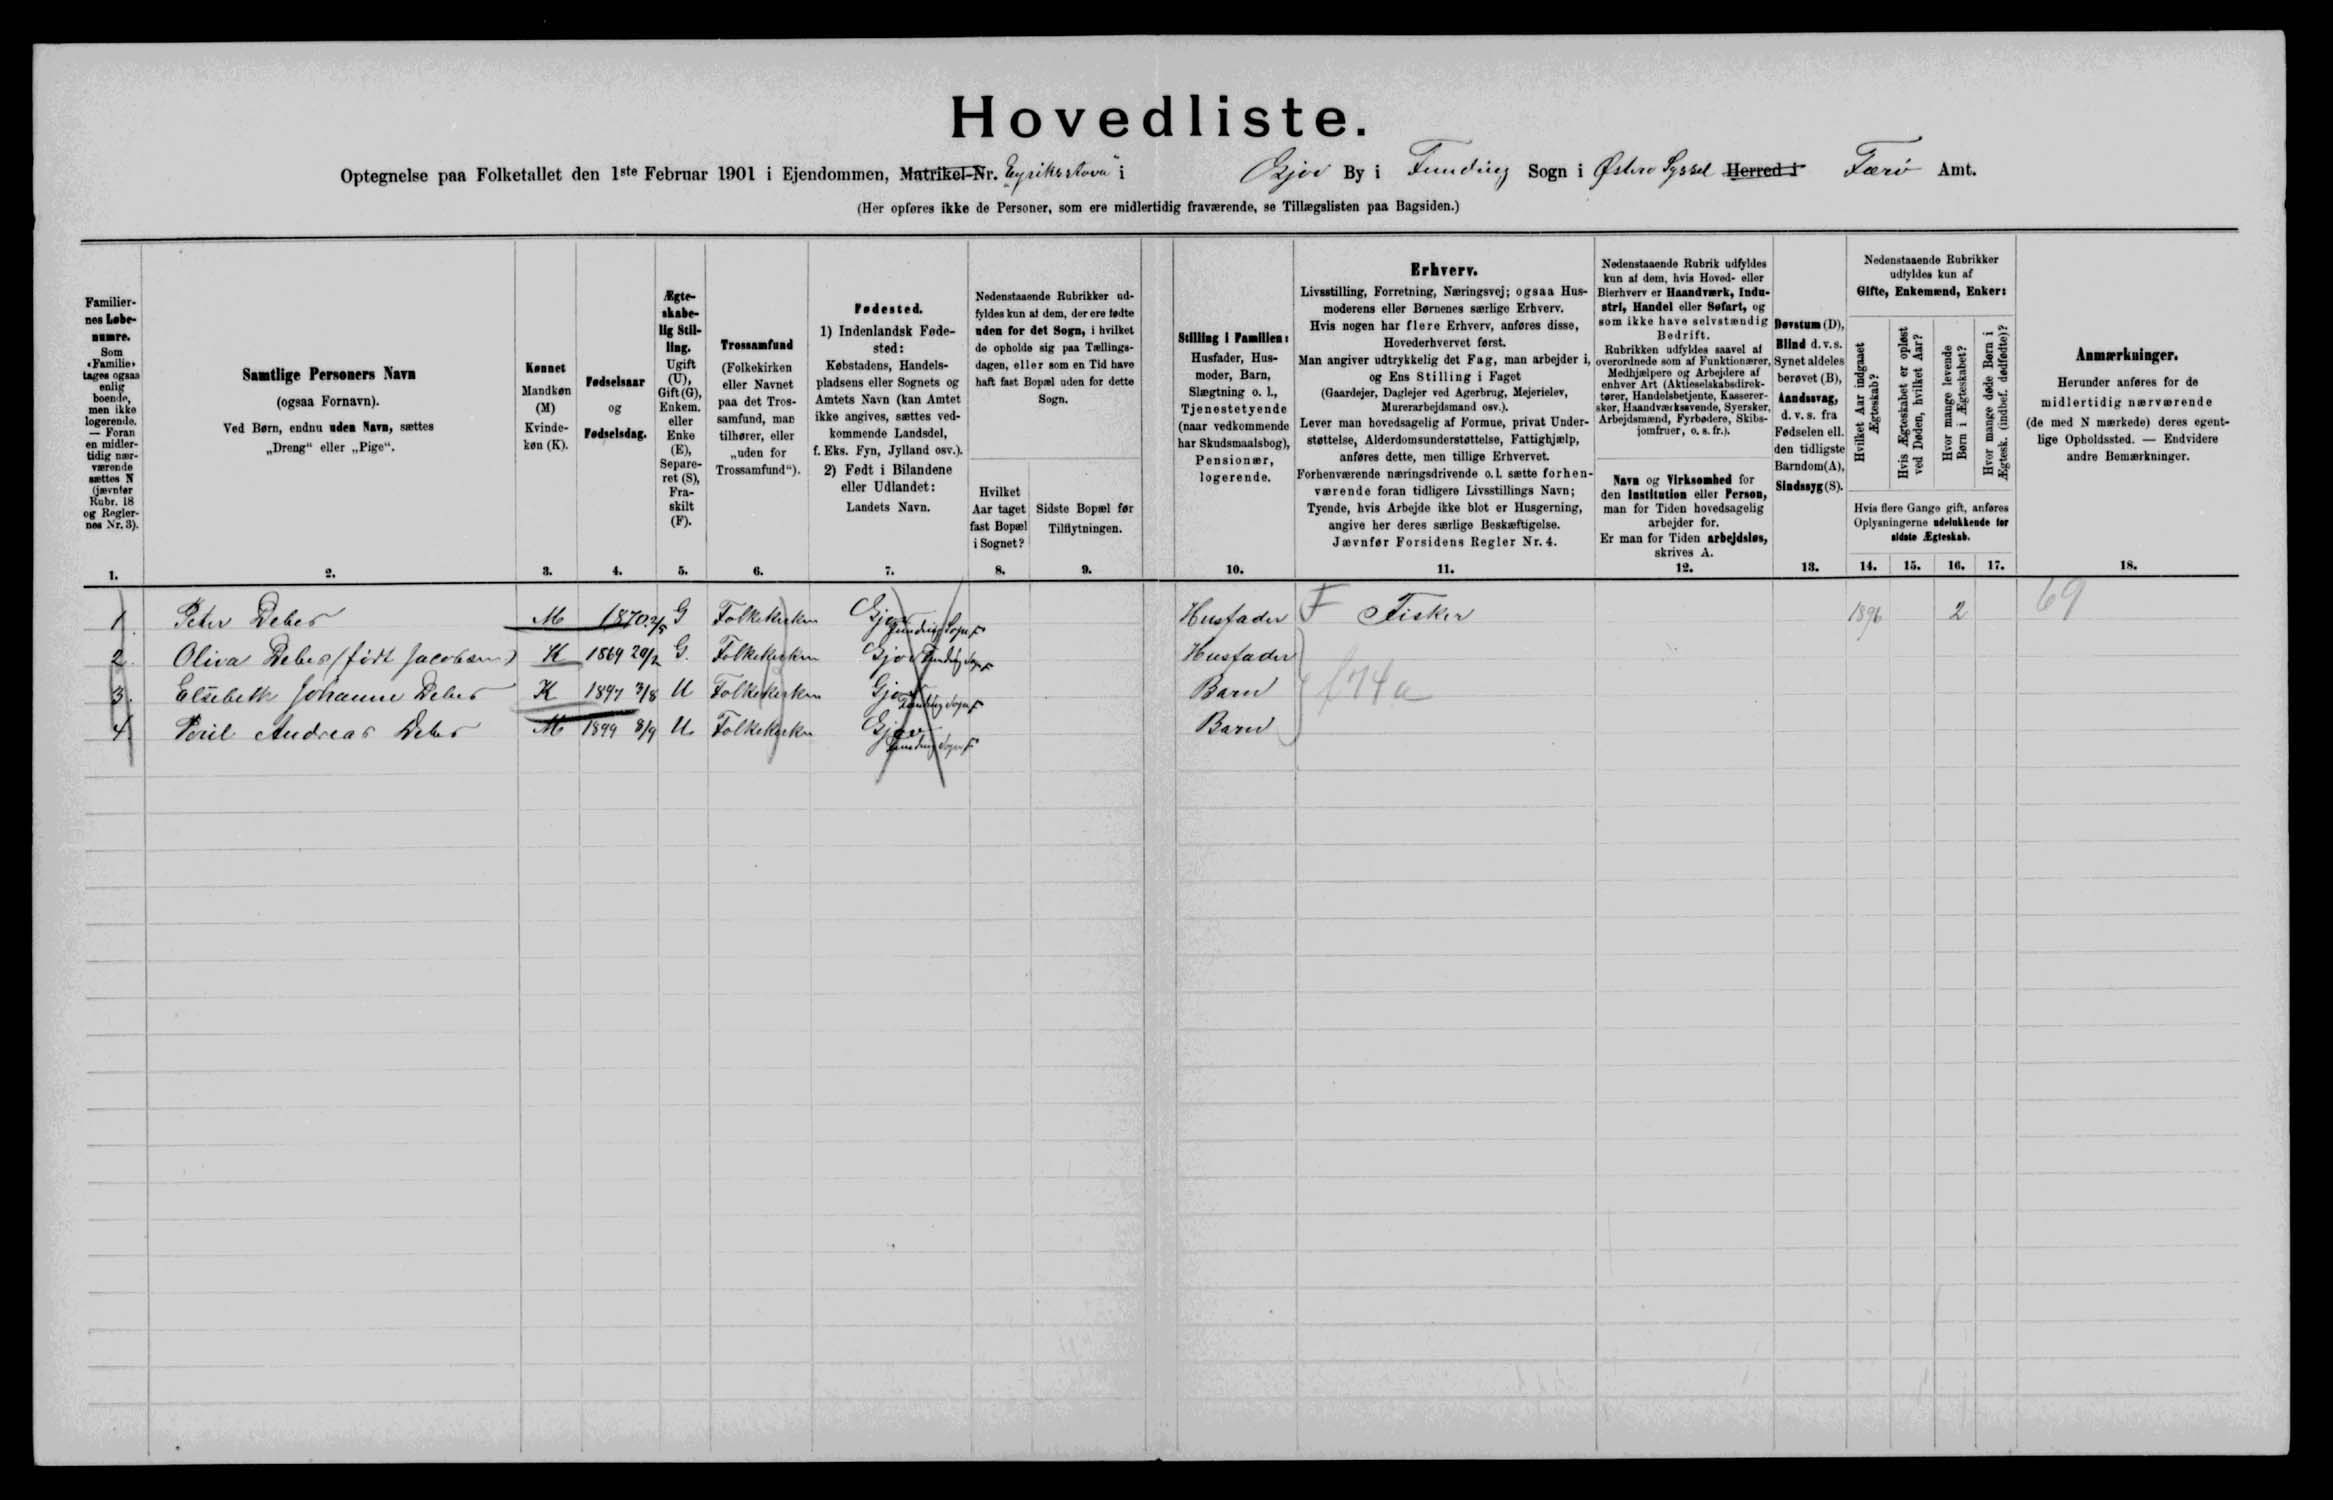 Hovedliste.
Optegnelse paa Folketallet den 1ste Februar 1901 i Ejendommen, Matrikel-Nr. "Eyriksstova" i Gjov By i Funding Sogn i Østero Syssel Herred i Færø Amt.
(Her opføres ikke de Personer, som ere midlertidig fraværende, se Tillægslisten paa Bagsiden.)
Familiernes Løbenumre.
Som
«Familie»
tages ogsaa
enlig
boende,
men ikke
logerende.
— Foran
en midlertidig nærværende
sættes N
(jævnfør
Rubr. 18
og Reglernes Nr. 3).
1.
Samtlige Personers Navn
(ogsaa Fornavn).
Ved Børn, endnu uden Navn, sættes
„Dreng“ eller „Pige“.
2.
Kønnet
Mandkøn
(M)
Kvindekøn (K).
3.
Fødselsaar
og
Fødselsdag.
4.
Ægteskabelig Stilling.
Ugift
(U),
Gift (G),
Enkem.
eller
Enke
(E),
Separeret (S),
Fraskilt
(F).
5.
Trossamfund
(Folkekirken
eller Navnet
paa det Trossamfund, man
tilhører, eller
„uden for
Trossamfund“).
6.
Fødested.
1) Indenlandsk Fødested:
Købstadens, Handelspladsens eller Sognets og
Amtets Navn (kan Amtet
ikke angives, sættes vedkommende Landsdel,
f. Eks. Fyn, Jylland osv.).
2) Født i Bilandene
eller Udlandet:
Landets Navn.
7.
Nedenstaaende Rubrikker udfyldes kun af dem, der ere fødte
uden for det Sogn, i hvilket
de opholde sig paa Tællingsdagen, eller som en Tid have
haft fast Bopæl uden for dette
Sogn.
Hvilket
Aar taget
fast Bopæl
i Sognet?
8.
Sidste Bopæl før
Tilflytningen.
9.
Stilling i Familien:
Husfader, Husmoder, Barn,
Slægtning o. l.,
Tjenestetyende
(naar vedkommende
har Skudsmaalsbog),
Pensionær,
logerende.
10.
Erhverv.
Livsstilling, Forretning, Næringsvej; ogsaa Husmoderens eller Børnenes særlige Erhverv.
Hvis nogen har flere Erhverv, anføres disse,
Hovederhvervet først.
Man angiver udtrykkelig det Fag, man arbejder i,
og Ens Stilling i Faget
(Gaardejer, Daglejer ved Agerbrug, Mejerielev,
Murerarbejdsmand osv.).
Lever man hovedsagelig af Formue, privat Understøttelse, Alderdomsunderstøttelse, Fattighjælp,
anføres dette, men tillige Erhvervet.
Forhenværende næringsdrivende o. l. sætte forhenværende foran tidligere Livsstillings Navn;
Tyende, hvis Arbejde ikke blot er Husgerning,
angive her deres særlige Beskæftigelse.
Jævnfør Forsidens Regler Nr. 4.
11.
Nedenstaaende Rubrik udfyldes
kun af dem, hvis Hoved- eller
Bierhverv er Haandværk, Industri, Handel eller Søfart, og
som ikke have selvstændig
Bedrift.
Rubrikken udfyldes saavel af
overordnede som af Funktionærer,
Medhjælpere og Arbejdere af
enhver Art (Aktieselskabsdirektører, Handelsbetjente, Kasserersker, Haandværkssvende, Syersker,
Arbejdsmænd, Fyrbødere, Skibsjomfruer, o. s. fr.).
Navn og Virksomhed for
den Institution eller Person,
man for Tiden hovedsagelig
arbejder for.
Er man for Tiden arbejdsløs,
skrives A.
12.
Døvstum (D),
Blind d. v. s.
Synet aldeles
berøvet (B),
Aandssvag,
d. v. s. fra
Fødselen ell.
den tidligste
Barndom (A),
Sindssyg (S).
13.
Nedenstaaende Rubrikker
udfyldes kun af
Gifte, Enkemænd, Enker:
Hvilket Aar indgaaet
Ægteskab?
Hvis Ægteskabet er opløst
ved Døden, hvilket Aar?
Hvor mange levende
Børn i Ægteskabet?
Hvor mange døde Børn i
Ægtesk. (indbef. dødfødte)?
Hvis flere Gange gift, anføres
Oplysningerne udelukkende for
sidste Ægteskab.
14. 15. 16. 17.
Anmærkninger.
Herunder anføres for de
midlertidig nærværende
(de med N mærkede) deres egentlige Opholdssted. — Endvidere
andre Bemærkninger.
18.
1. Peter Debes M 1870 2/5 G Folkekirken Gjov Funding Sogn F. Husfader F Fisker 1896 2 69
2. Oliva Debes (født Jacobsen) K 1869 29/2 G. Folkekirken Gjov Funding Sogn F. Husfader
3. Elsebeth Johanne Debes K 1897 3/8 U Folkekirken Gjov Funding Sogn F. Barn
4. Poul Andreas Debes M 1899 8/9 U. Folkekirken Gjov Funding Sogn F. Barn